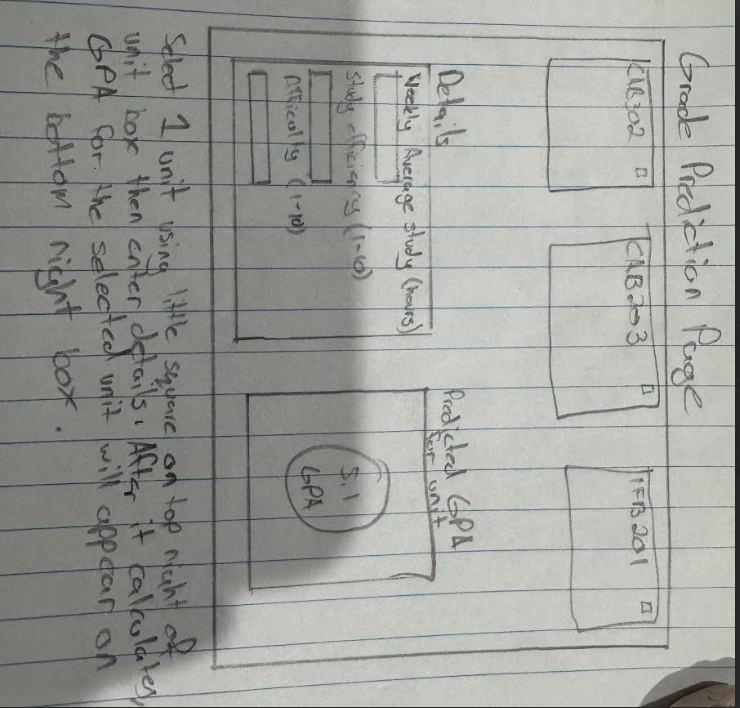 Grade Prediction Page
CAB302
CAB203
IFB201
Details
Weekly Average study (hours)
Study efficiency (1-10)
Difficulty (1-10)
Predicted GPA
for unit
5.1
GPA
Select 1 unit using little square on top right of
unit box then enter details. After it calculates,
GPA for the selected unit will appear on
the bottom right box.